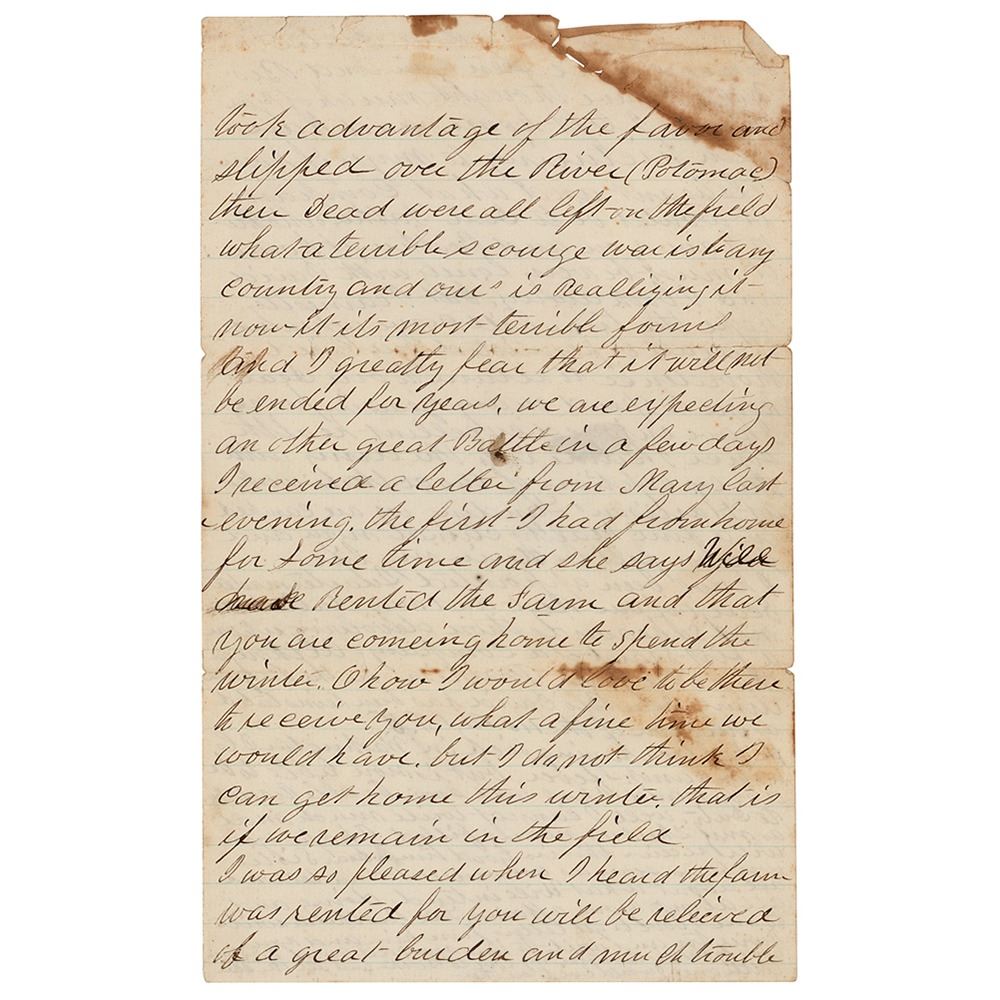 took advantage of the favor and
slipped over the River (Potomac)
their Dead were all left on the field
what a terrible scourge war is to any
country and ours is reallizing it
now it its most terrible form
And I greatly fear that it will not
be ended for years. we are expecting
an other great Battle in a few days
I received a letter from Mary last
evening. the first I had from home
for some time and she says
Rented the Farm and that
you are comeing home to spend the
winter. O how I would love to be there
to receive you, what a fine time we
would have. but I do not think I
can get home this winter. that is
if we remain in the field
I was so pleased when I heard the farm
was rented for you will be releived
of a great burden and much trouble